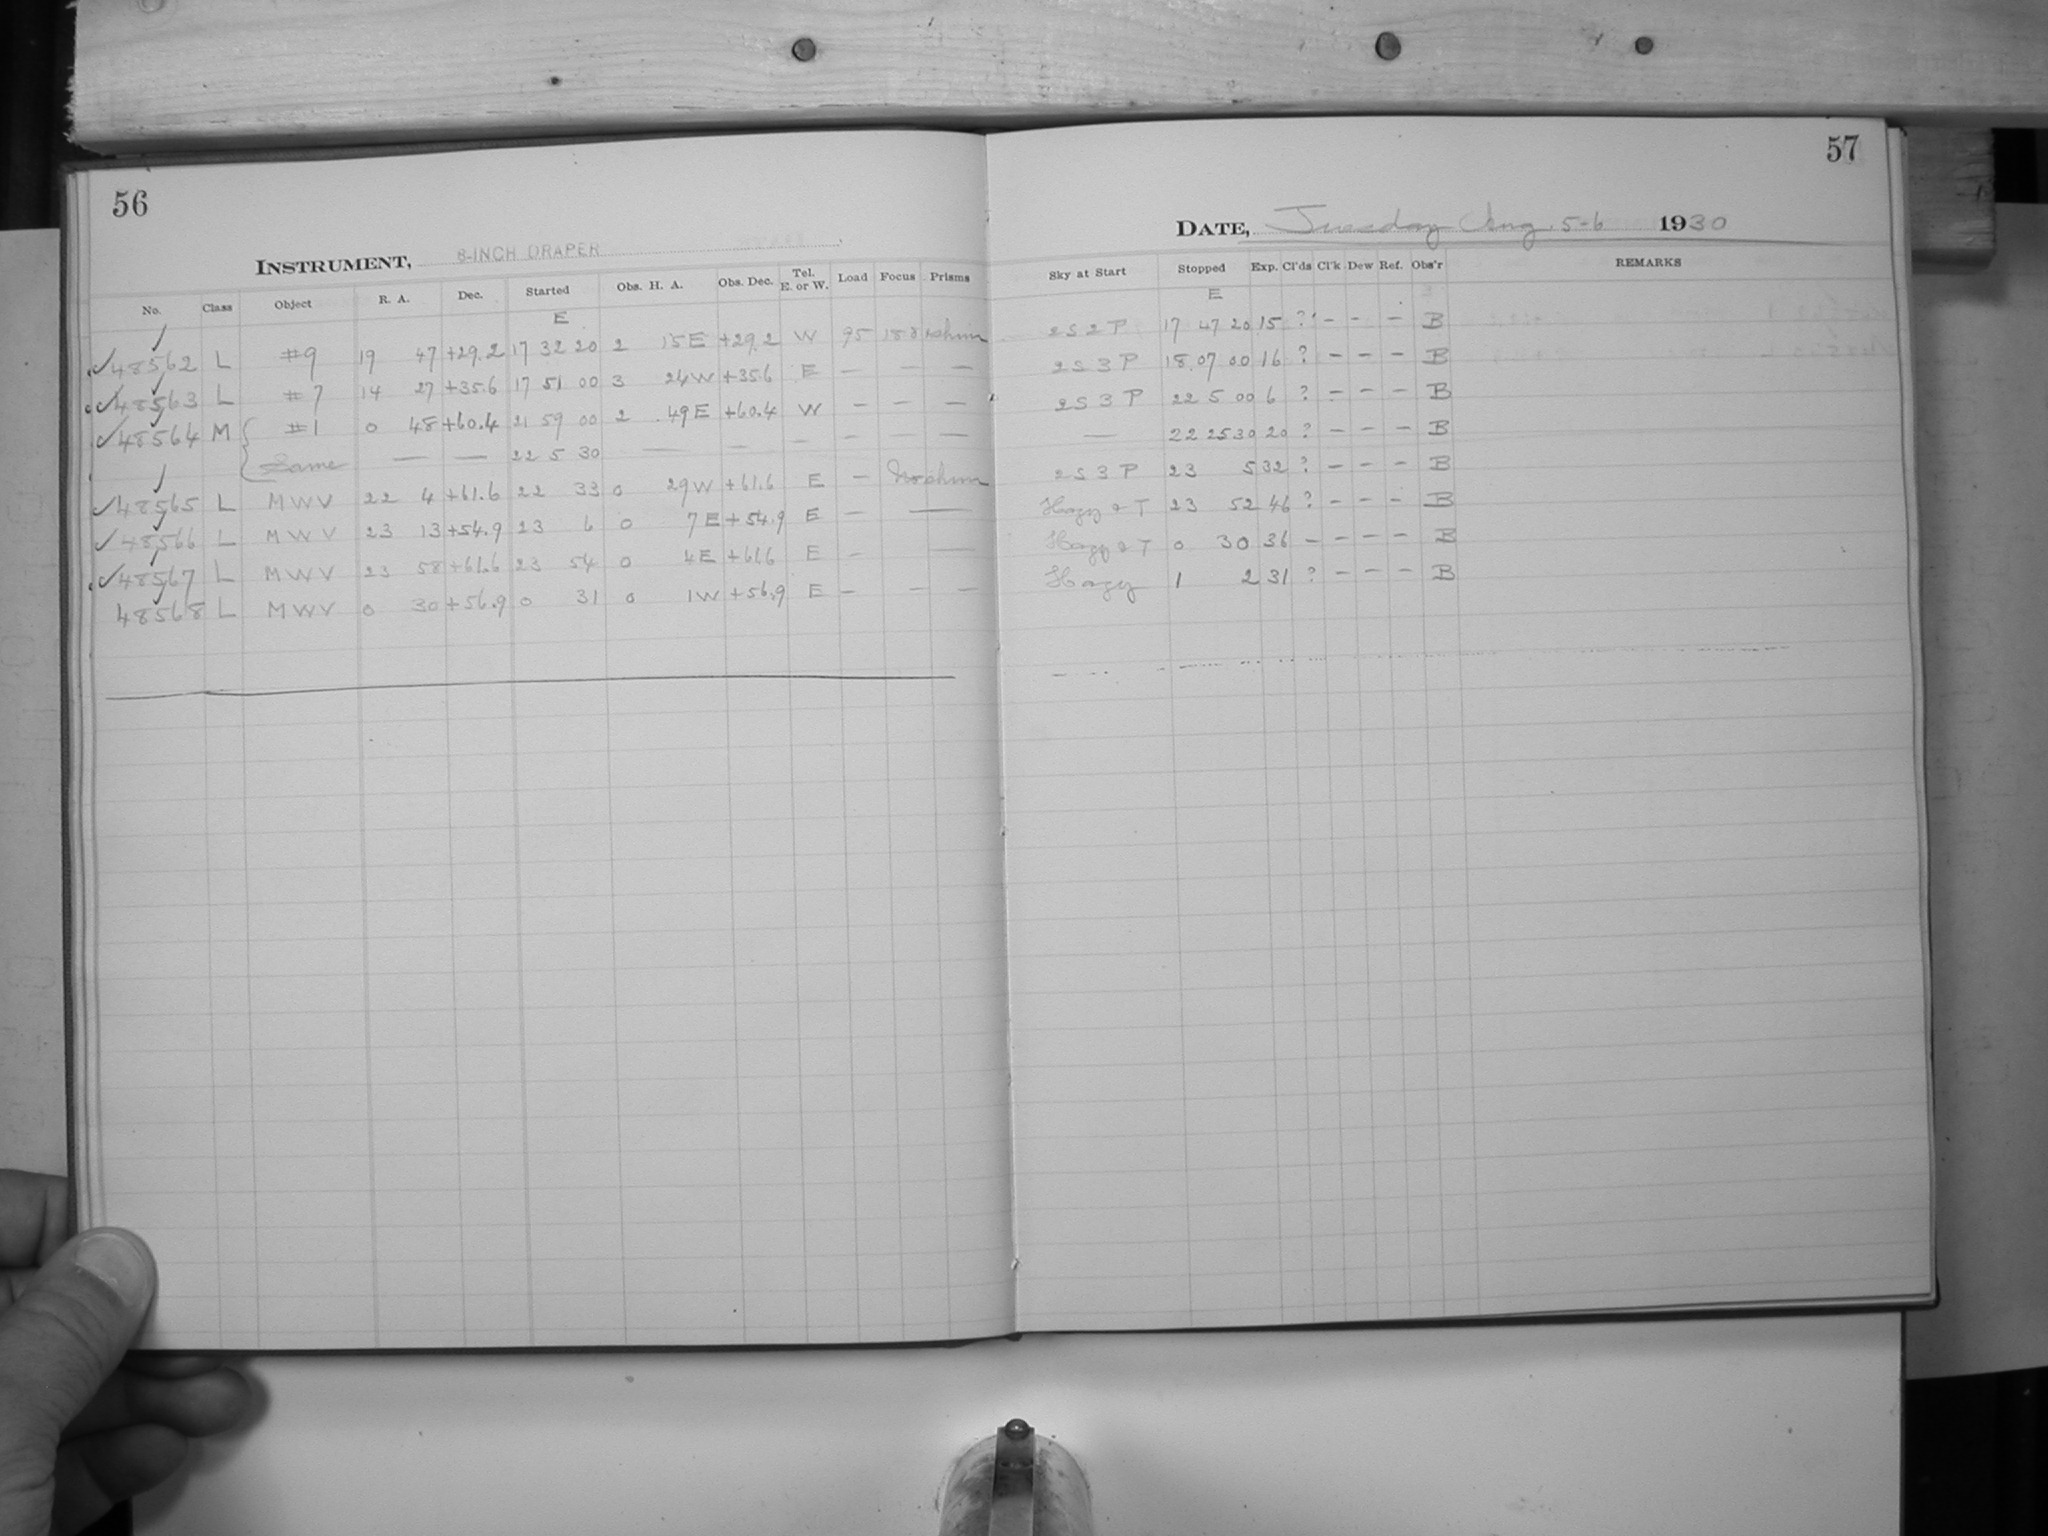 56
INSTRUMENT, 8-INCH DRAPER
No. Class Object R. A. Dec. Started Obs. H. A. Obs. Dec. Tel. E. or W. Load Focus Prisms
E
✓48562 L #9 19 47 +29.2 17 32 20 2 15E +29.2 W 95
✓48563 L #7 14 27 +35.6 17 51 00 3 24W +35.6 E — — —
✓48564 M #1 0 48 +60.4 21 59 00 2 49E +60.4 W — — —
Same — — 22 5 30 — — — — — —
✓48565 L MWV 22 4 +61.6 22 33 0 29W +61.6 E —
✓48566 L MWV 23 13 +54.9 23 6 0 7E +54.9 E — —
✓48567 L MWV 23 58 +61.6 23 54 0 4E +61.6 E — —
48568 L MWV 0 30 +56.9 0 31 0 1W +56.9 E — — —
57
DATE, Tuesday Aug. 5-6 1930
Sky at Start Stopped Exp. Cl'ds Cl'k Dew Ref. Obs'r REMARKS
E
2S 2P 17 47 20 15 ? — — — B
2S 3P 18 07 00 16 ? — — — B
2S 3P 22 5 00 6 ? — — — B
— 22 25 30 20 ? — — — B
2S 3P 23 5 32 ? — — — B
Hazy & T 23 52 46 ? — — — B
Hazy & T 0 30 36 — — — — B
Hazy 1 2 31 ? — — — B